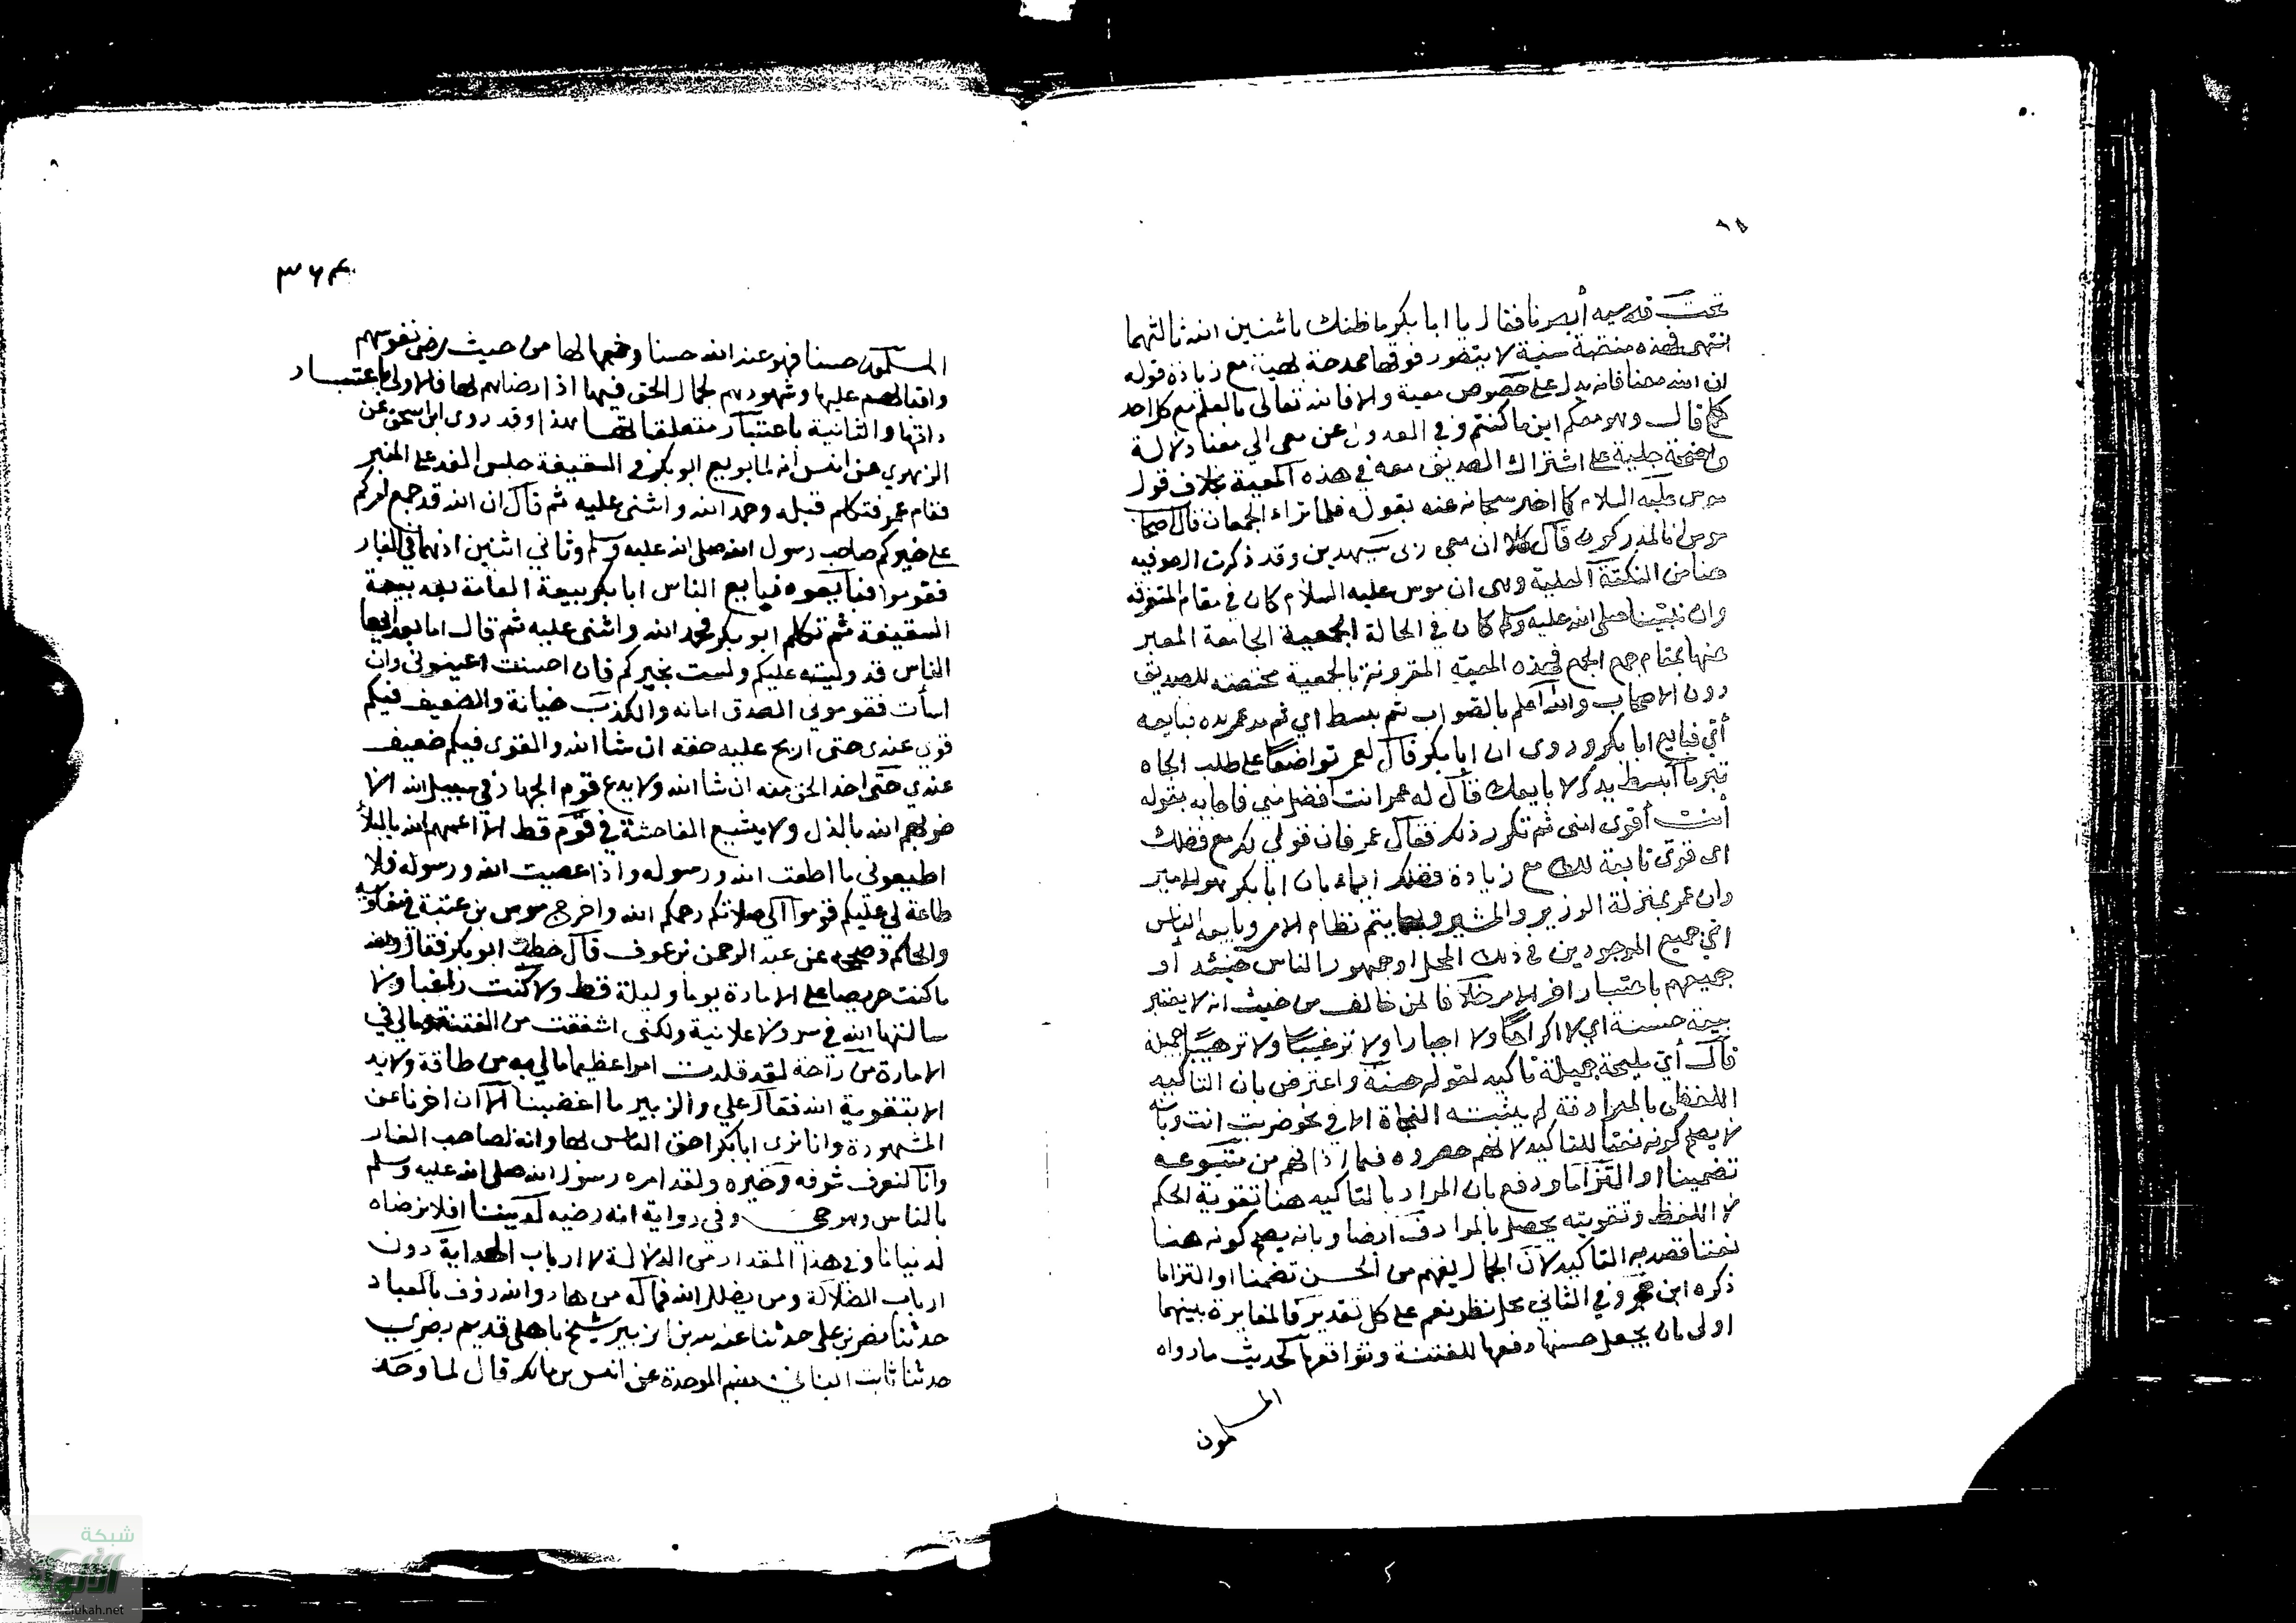 تحت قدميه أبصرنا فقال يا ابا بكر ما ظنك باثنين الله ثالثهما
انتهى فهذه منقبة سنية لا يتصور فوقها ممدحة بهية مع زيادة قوله
ان الله معنا فانه يدل على خصوص معية والا فالله تعالى بالعلم مع كل احد
كما قال وهو معكم اين ما كنتم وفي العدول عن معي الي معنا دلالة
واضحة جلية على اشتراك الصديق معه في هذه المعية بخلاف قول
موسى عليه السلام كما اخبر سبحانه عنه بقوله فلما تراء الجمعان قال اصحاب
موسى انا لمدركون قال كلا ان معي ربى سيهدين وقد ذكرت الصوفيه
هنا من النكتة العلية وهى ان موسى عليه السلام كان في مقام التفرقه
وان نبينا صلى الله عليه وسلم كان في الحالة الجمعية الجامعة المعبر
عنها بمقام جمع الجمع فهذه المعية المقرونة بالجمعية مختصه للصديق
دون الاصحاب والله اعلم بالصواب ثم بسط اي ثم مد عمر يده فبايعه
أتي فبايع ابا بكر وروى ان ابا بكر قال لعمر تواضعًا على طلب الجاه
تبريا ابسط يدك لا بايعك قال له عمر انت افضل مني فاجابه بقوله
أنت أقوى منى ثم تكرر ذلك فقال عمر فان قولي لك مع فضلك
اى قوتى تابعة لك مع زيادة فضلك ايماء بان ابا بكر هو الامير
وان عمر بمنزلة الوزير والمشير وبهما يتم نظام الامر وبايعه الناس
اي جميع الموجودين في ذلك المحل او جمهور الناس حينئذ او
جميعهم باعتبار اخر الامر خلافا لمن خالف من حيث انه لا يعتبر
بيعة حسنة اي لا اكراهًا ولا اجبارا ولا ترغيبًا ولا ترهيبًا جميلة
قال أي مليحة جميلة تاكيد لقوله حسنة واعترض بان التاكيد
اللفظى بالمرادفة لم يثبته النحاة الا في نحو ضربت انت وبانه
لا يصح كونه نعتًا للتاكيد لانهم حصروه فيما اذا فهم من متبوعه
تضمينا او التزاما ودفع بان المراد بالتاكيد هنا تقوية الحكم
لا اللفظ وتقويته يحصل بالمرادف ايضا وبانه يصح كونه هنا
نعتنا قصد به التاكيد لان الجمال يفهم من الحسن تضمنا او التزاما
ذكره ابن حجر وفي الثاني محل نظر نعم على كل تقدير فالمغايرة بينهما
اولى بان يجعل حسنها دفعها للفتنة وتوافقها لحديث ما رواه
المسلمون
٣٦٤
المسلمون حسنا فهو عند الله حسنا وجمالها من حيث رضى نفوسهم
واقبالهم عليها وشهودهم لجمال الحق فيها اذ ارضاهم لها فالاولى باعتبار
ذاتها والثانية باعتبار متعلقاتها هذا وقد روى ابن اسحق عن
الزهري عن انس أنه لما بويع ابو بكر في السقيفة جلس الغد على المنبر
فقام عمر فتكلم قبله وحمد الله واثنى عليه ثم قال ان الله قد جمع امركم
على خيركم صاحب رسول الله صلى الله عليه وسلم وثاني اثنين اذ هما في الغار
فقوموا فبايعوه فبايع الناس ابا بكر بيعة العامة بعد بيعة
السقيفة ثم تكلم ابو بكر فحمد الله واثنى عليه ثم قال اما بعد ايها
الناس قد وليته عليكم ولست بخيركم فان احسنت اعينوني وان
اسأت فقوموني الصدق امانه والكذب خيانة والضعيف فيكم
قوي عندى حتى اريح عليه حقه ان شا الله والقوى فيكم ضعيف
عندي حتى اخذ الحق منه ان شا الله ولا يدع قوم الجهاد في سبيل الله الا
ضربهم الله بالذل ولا يشيع الفاحشة في قوم قط الا اعمهم الله بالبلأ
اطيعونى ما اطعت الله ورسوله واذا عصيت الله ورسوله فلا
طاعة لي عليكم قوموا الى صلاتكم رحمكم الله واخرج موسى بن عتبة في مغازيه
والحاكم وصححه عن عبد الرحمن بن عوف قال خطب ابو بكر فقال والله
ما كنت حريصا على الامارة يوما وليلة قط ولا كنت راغبا ولا
سالتها الله في سر ولا علانية ولكنى اشفقت من الفتنة ومالي في
الامارة من راحة لقد قلدت امرا عظيما مالي به من طاقة ولا يد
الا بتقوية الله فقال علي والزبير ما اغضبنا الا ان اخرنا عن
المشهورة وانا نرى ابا بكر احق الناس لها وانه لصاحب الغار
وانا لنعرف شرفه وخيره ولقد امره رسول الله صلى الله عليه وسلم
بالناس وهو حى وفي رواية انه رضيه لديننا افلا نرضاه
لدنيانا وفي هذا المقدار من الدلالة لا ارباب الهداية دون
ارباب الضلالة ومن يضلل الله فماله من هاد والله رؤف بالعباد
حدثنا نصر بن على حدثنا عبد الله بن الزبير شيخ باهلى قديم بصري
حدثنا ثابت البناني بضم الموحدة عن انس بن مالك قال لما وجد
شبكة
الألوكة
www.alukah.net